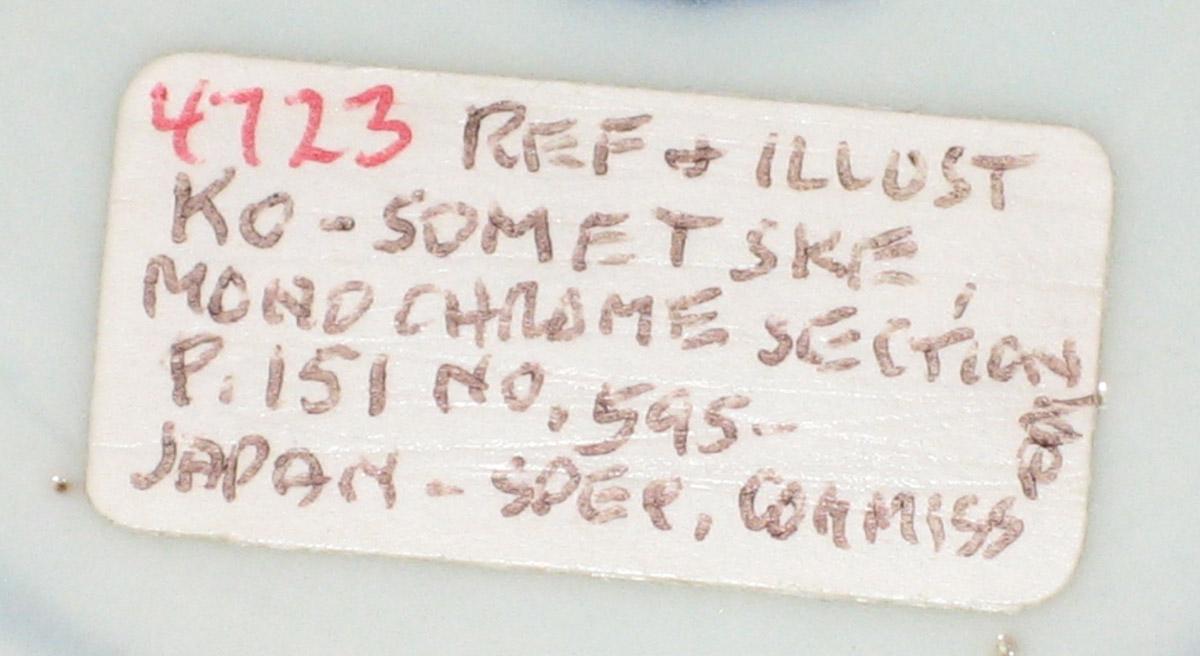 4723 REF + ILLUST
KO-SOMETSKE,
MONOCHROME SECTION
P. 151 NO. 595-
JAPAN - SPEC, COMMISS